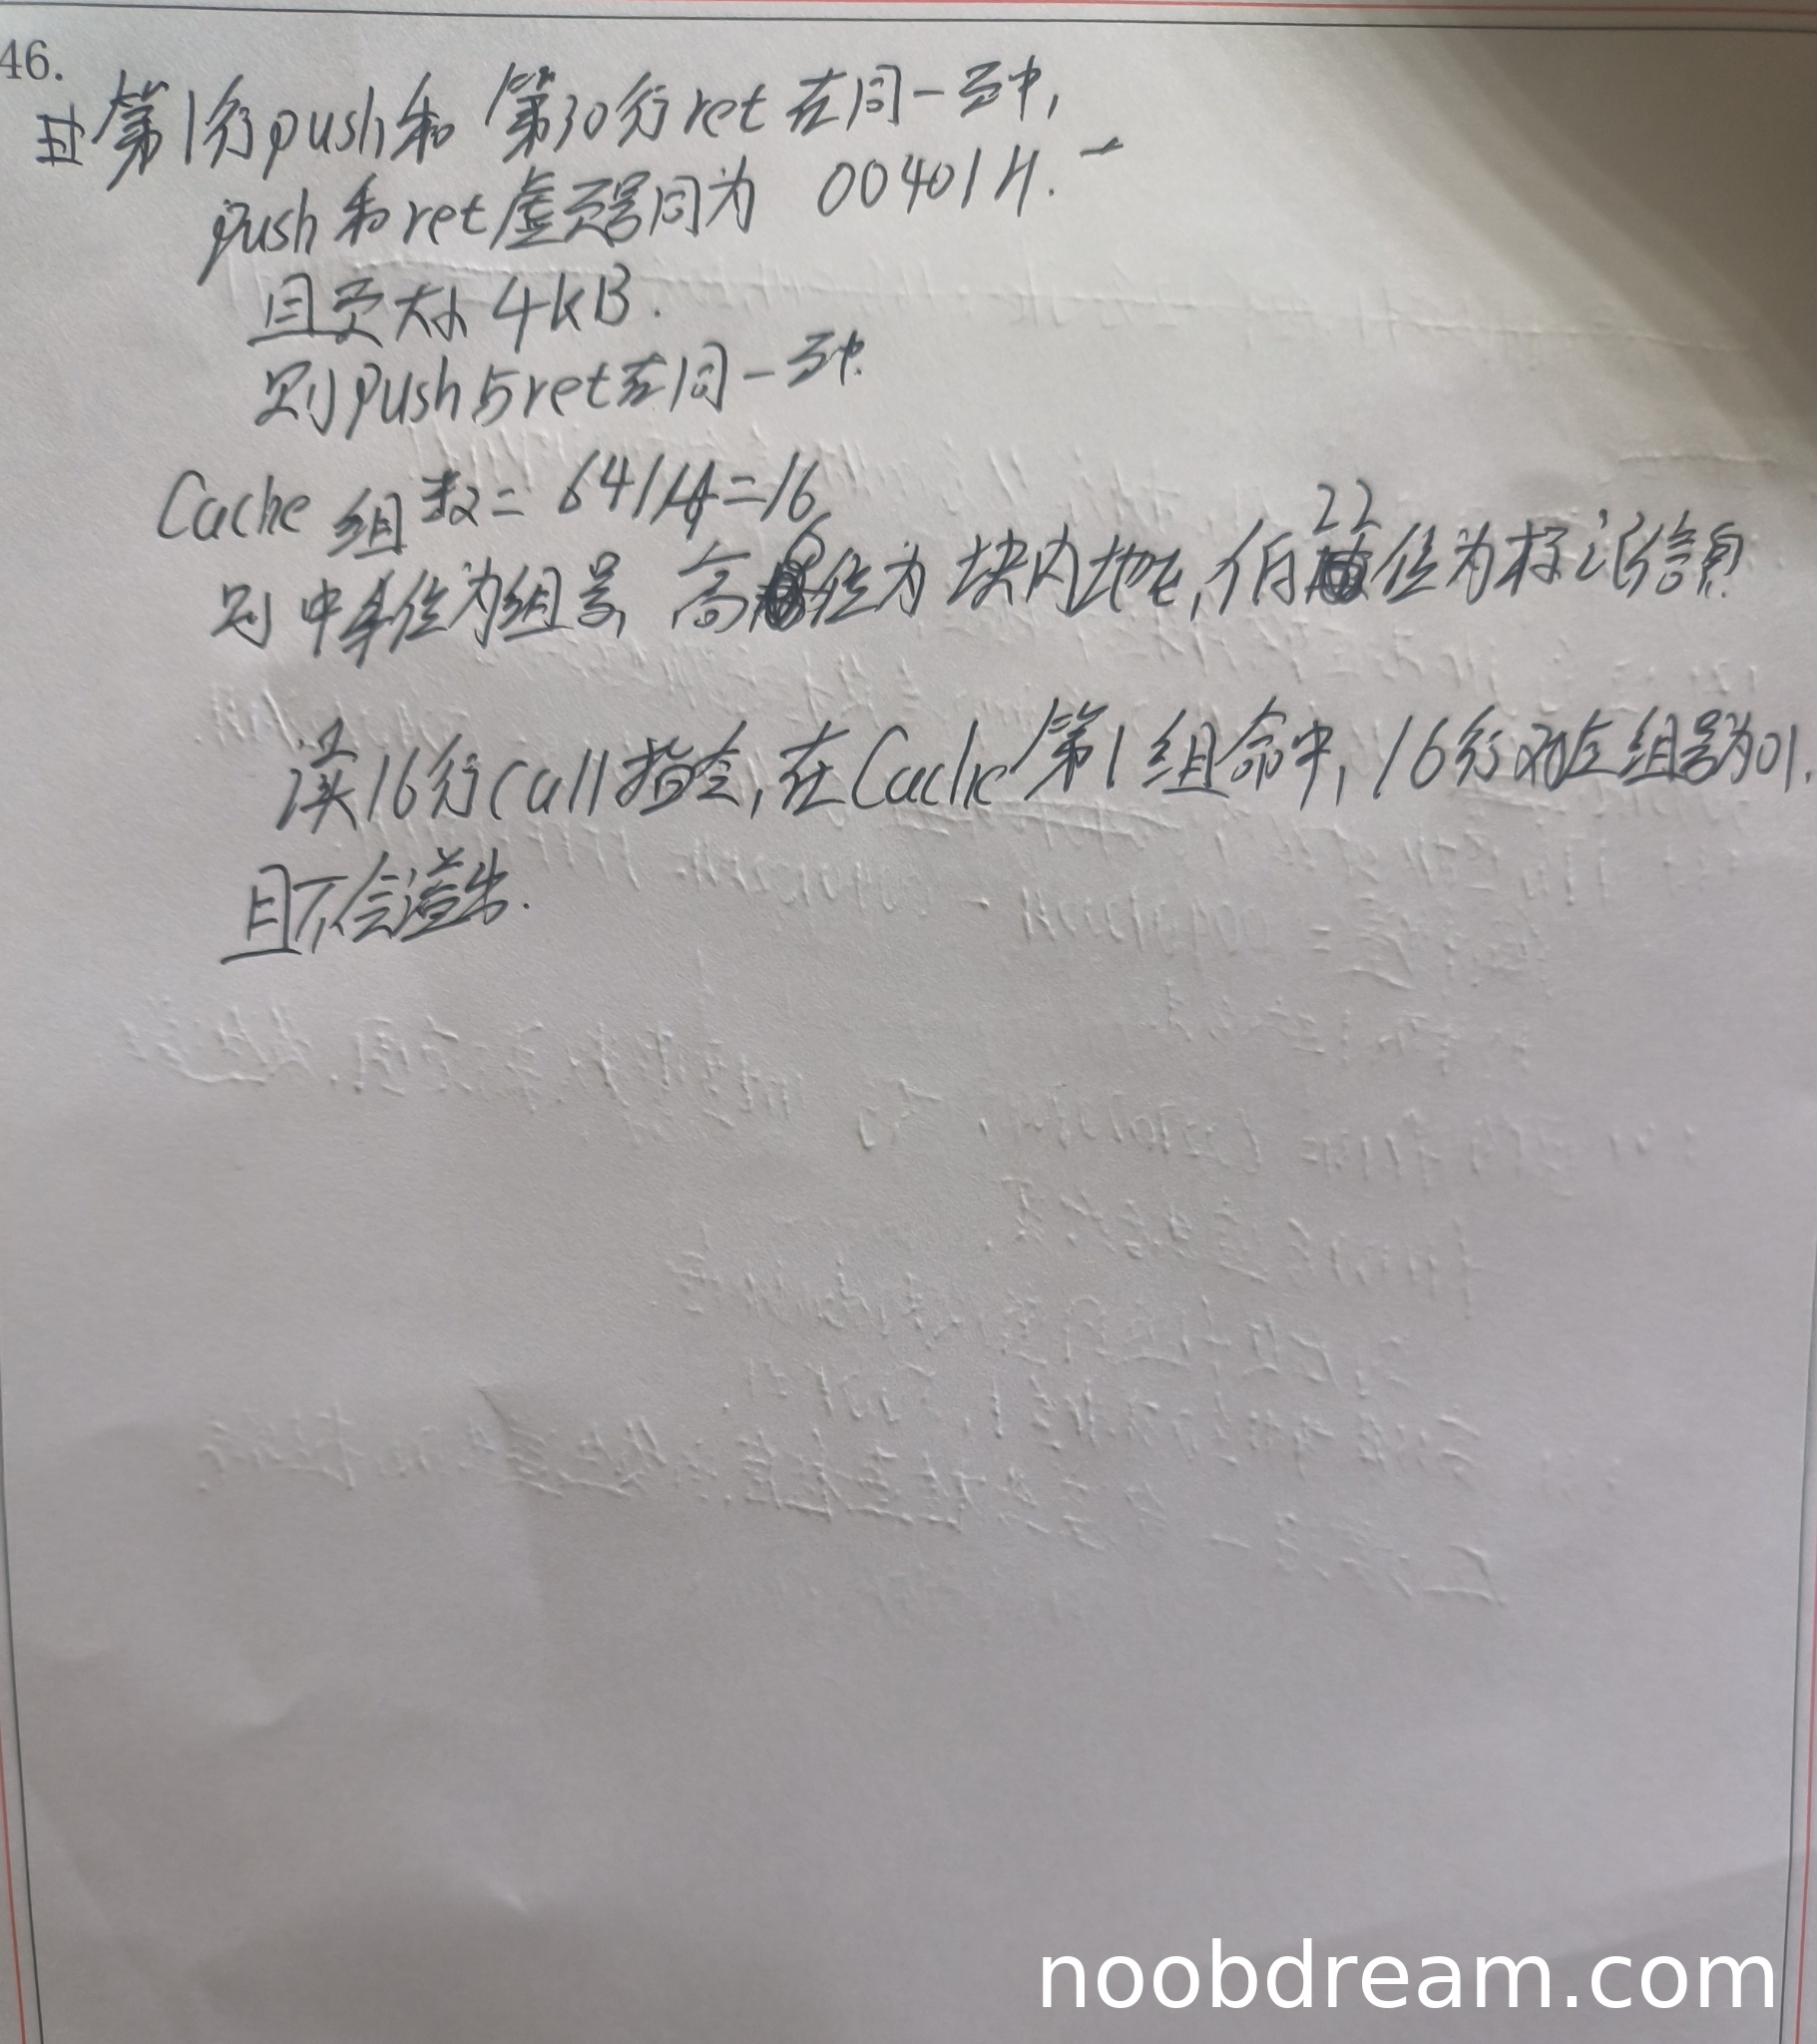 46.
第1行push和第30行ret在同一页中,
push和ret虚页号同为 00401H.
且页大小4kB.
则push与ret在同一页中.
Cache组数=64/4=16
则中4位为组号,高6位为块内地址,低22位为标记信息.
读16行call指令,在Cache第1组命中,16行对应组号为01.
且不会溢出.
noobdream.com